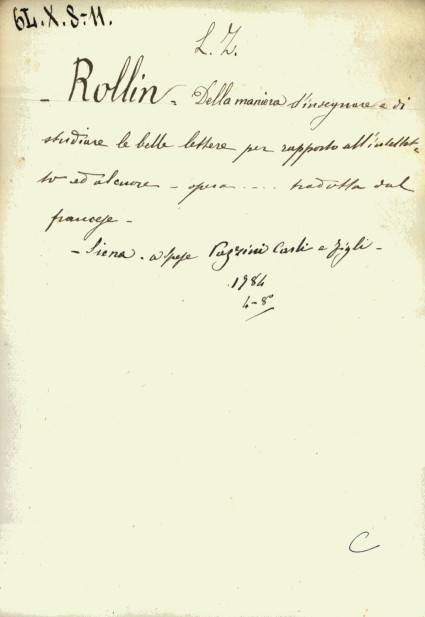 6L.X.8-11.
L. Z.
- Rollin = Della maniera d'insegnare e di
studiare le belle lettere per rapporto all'intellet-
to ed al cuore - opera .... tradotta dal
francese -
- Siena - a spese Pazzini Carli e figli -
1784
4-8º
C